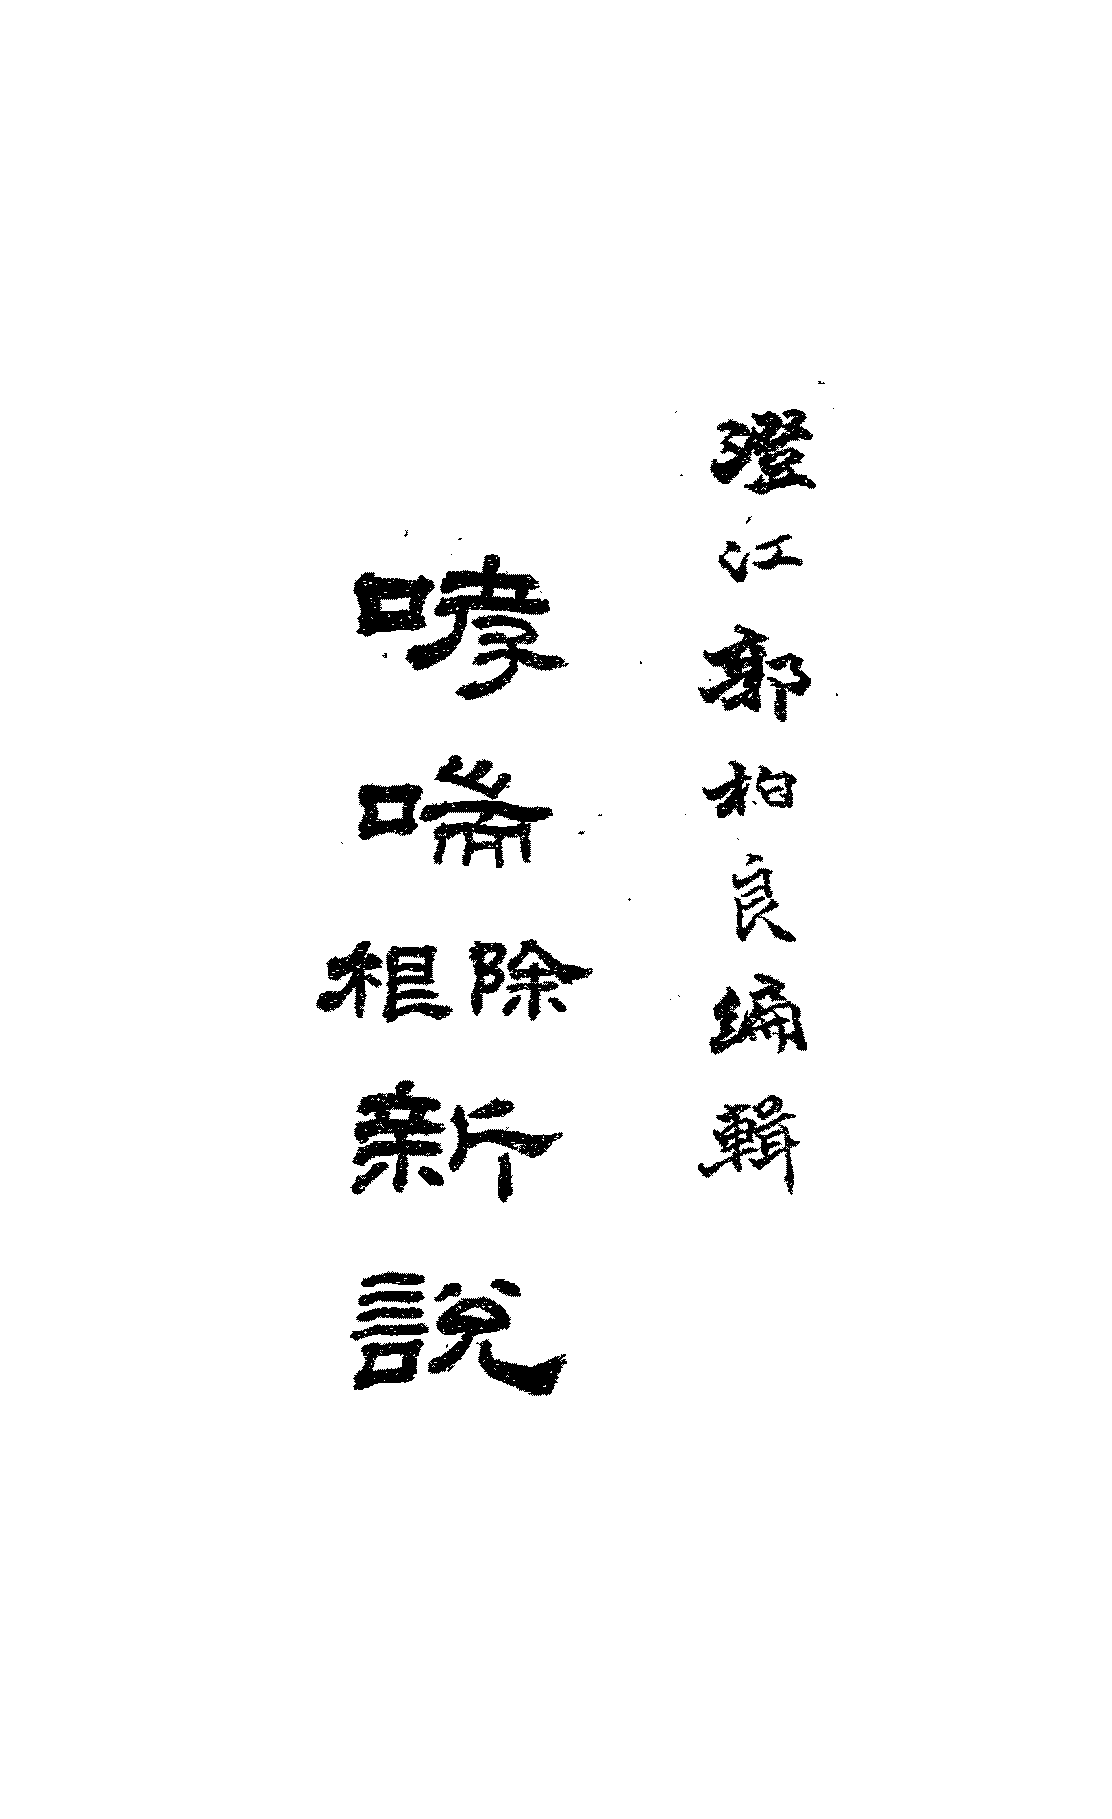 澄江郭柏良編輯
哮喘除根新說